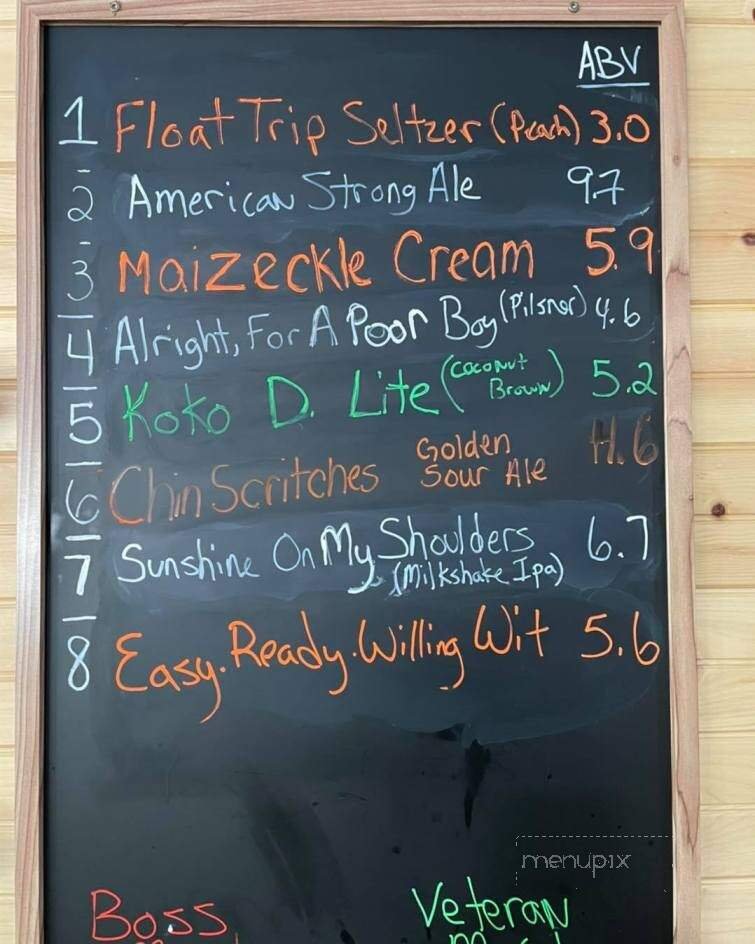 ABV
1 Float Trip Seltzer (Peach) 3.0
2 American Strong Ale 9.7
3 Maizeckle Cream 5.9
4 Alright, For A Poor Boy (Pilsner) 4.6
5 Koko D. Lite (Coconut Brown) 5.2
6 Chin Scritches Golden Sour Ale 4.6
7 Sunshine On My Shoulders (Milkshake Ipa) 6.7
8 Easy. Ready. Willing Wit 5.6
menupix
Boss Veteran